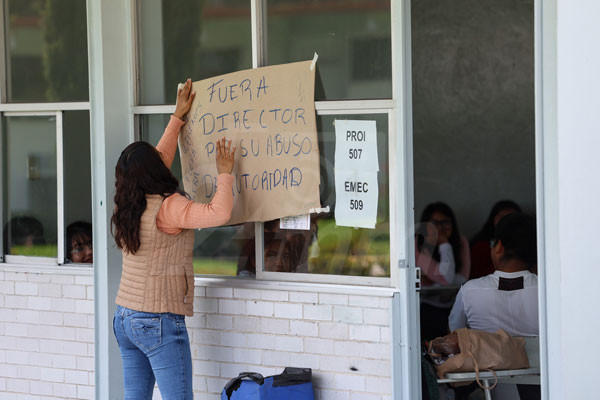 FUERA
DIRECTOR
POR SU ABUSO
DE AUTORIDAD
PROI
507
EMEC
509